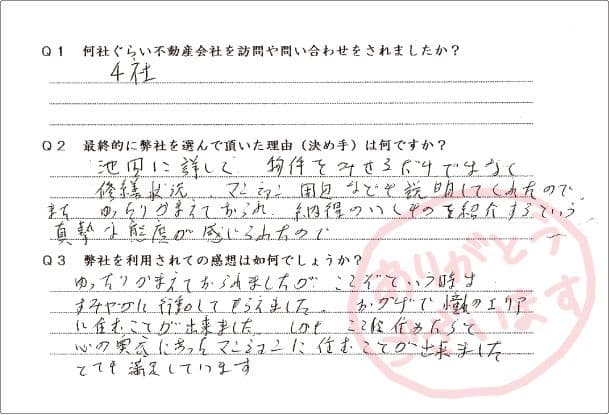 Q1 何社ぐらい不動産会社を訪問や問い合わせをされましたか?
4社
Q2 最終的に弊社を選んで頂いた理由(決め手)は何ですか?
池田に詳しく 物件をみせるだけではなく
修繕状況、マンション周辺なども説明してくれたので
また ゆったりかまえておられ、納得のいくものを紹介するという
真摯な態度が感じられたので
Q3 弊社を利用されての感想は如何でしょうか?
ゆったりかまえておられましたが ここぞという時は
すみやかに行動してもらえました。 おかげで憧れのエリア
に住むことが出来ました しかも ここに住めたらと
心の
にあったマンションに住むことが出来ました
とても満足しています
ありがとう
ございます